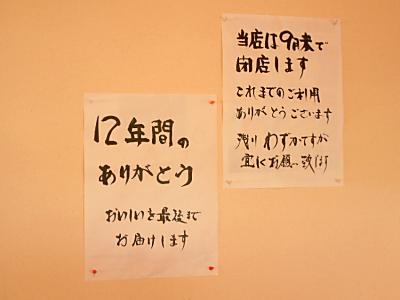 12年間の
ありがとう
おいしいを最後まで
お届けします
当店は9月末で
閉店します
これまでのご利用
ありがとうございます
残り わずかですが
宜しくお願い致します